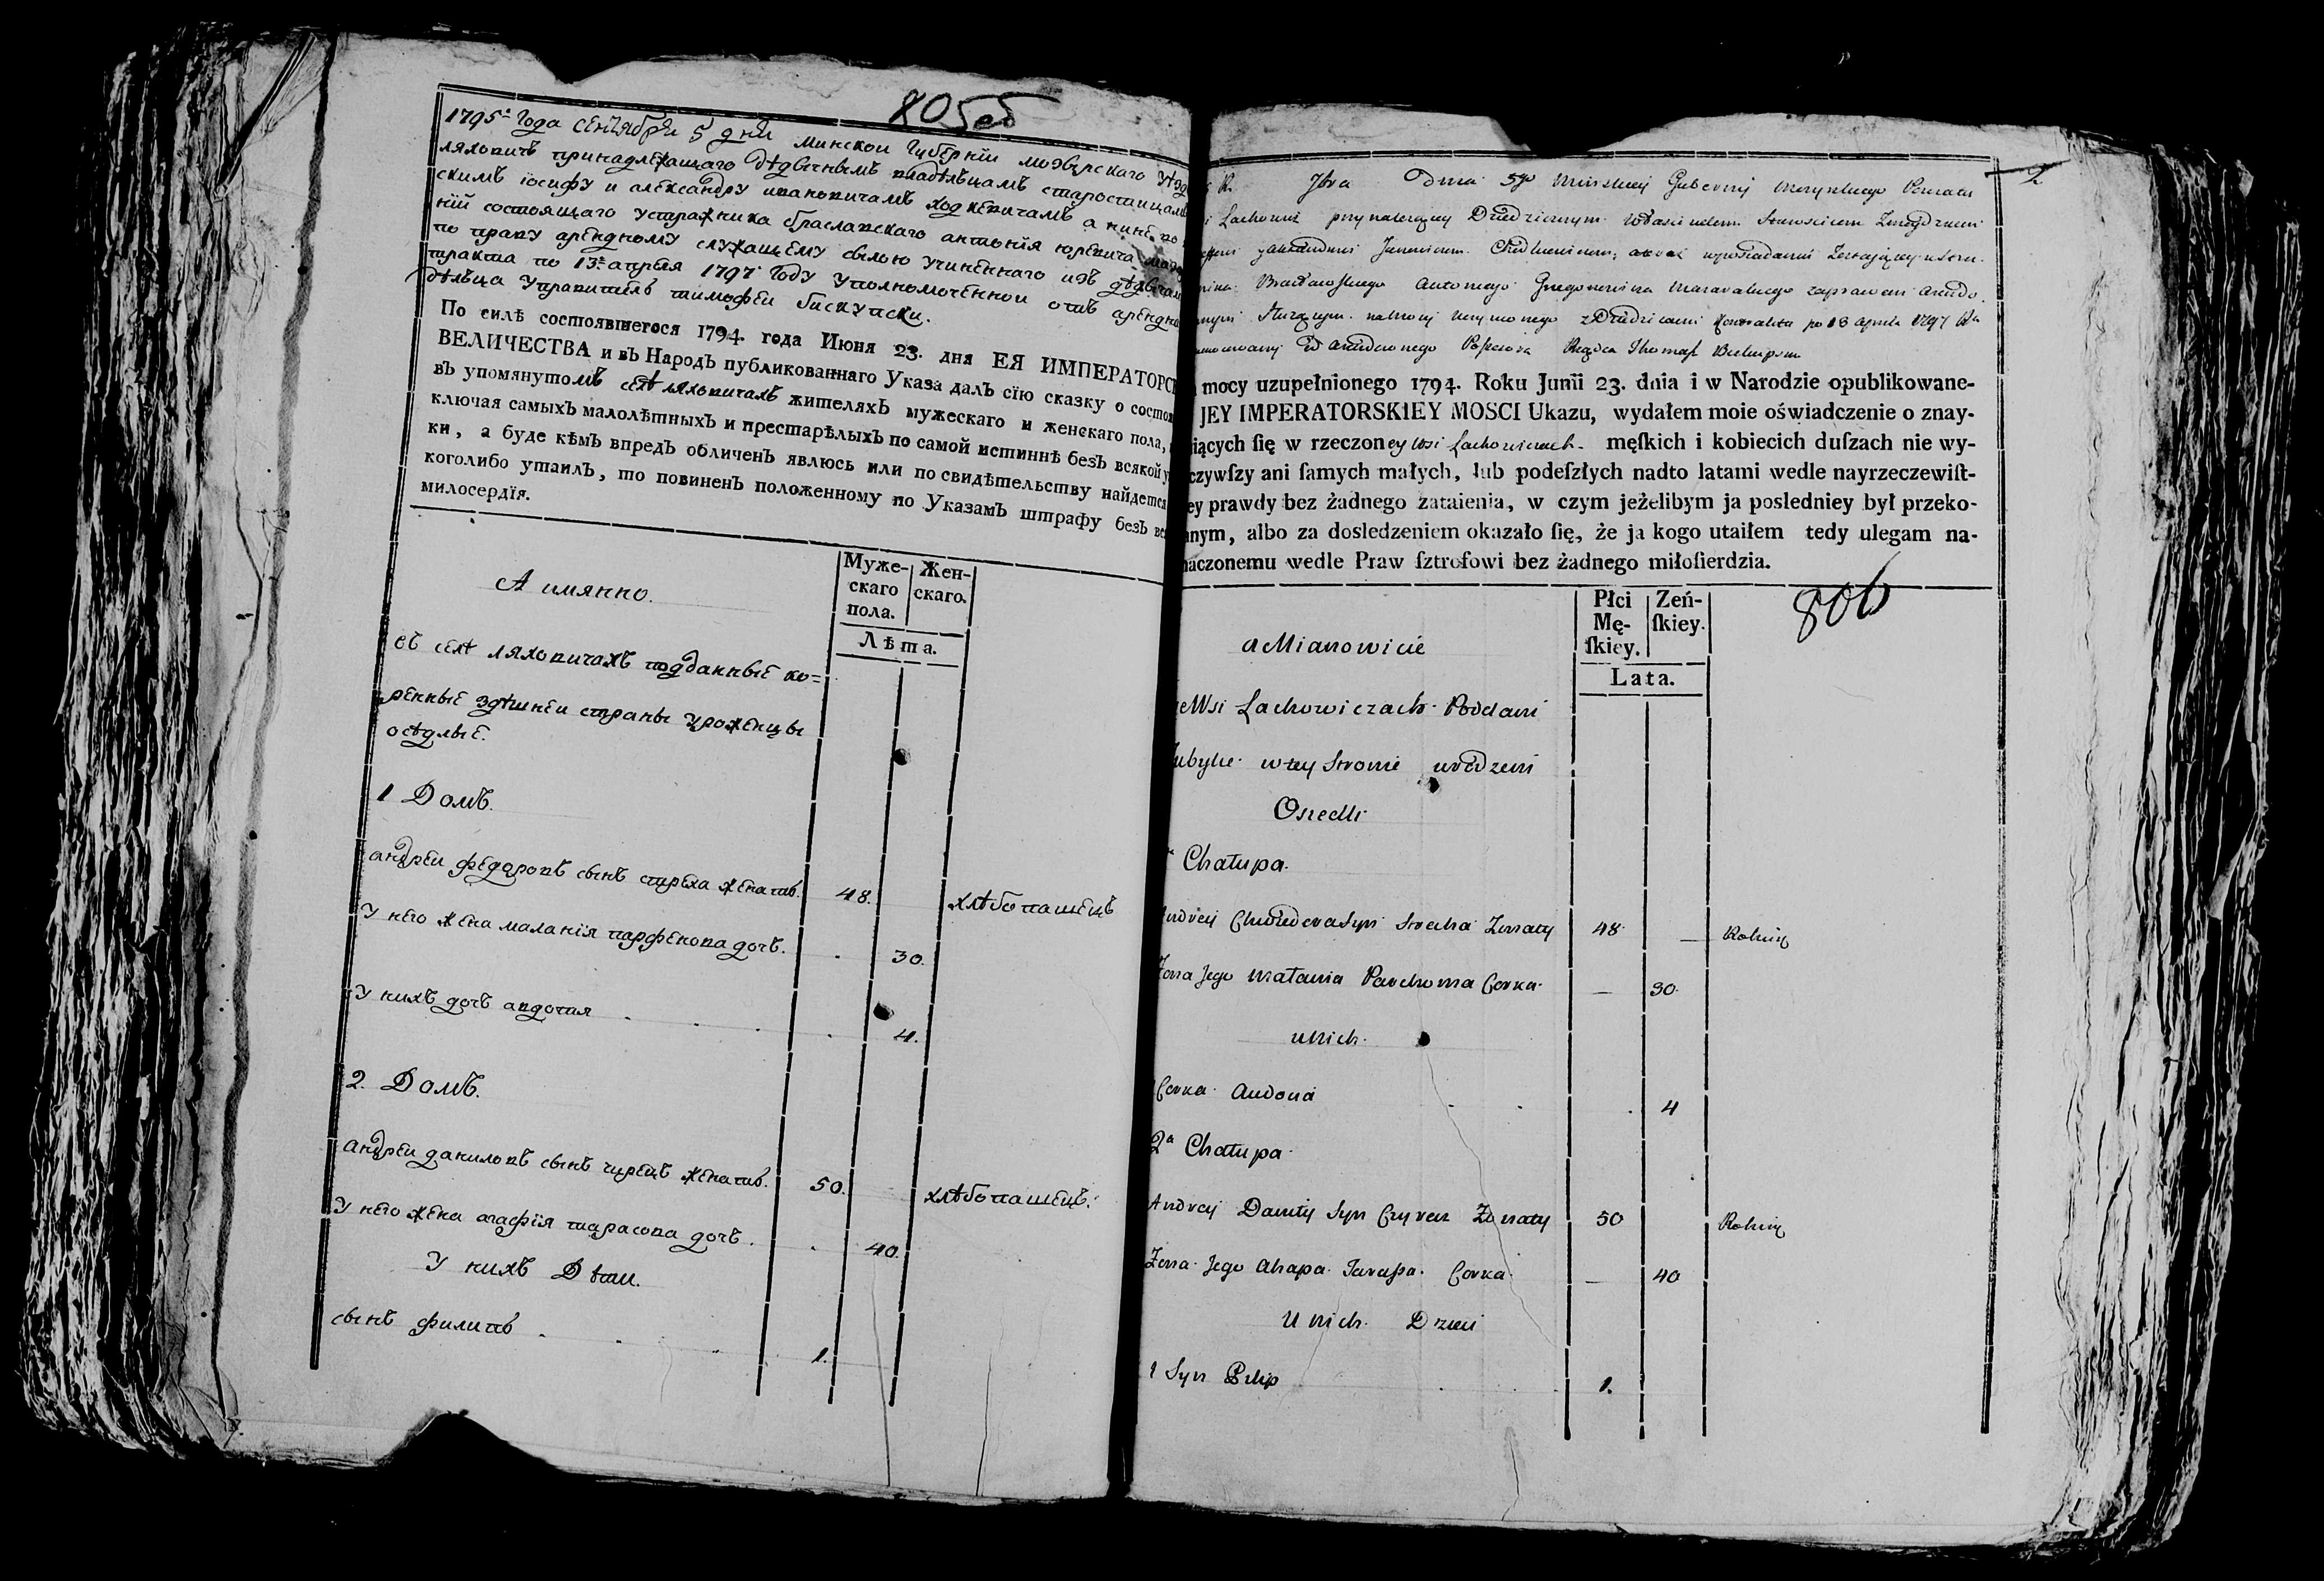 805об
1795г года сентября 5 дня минской губернии мозырскаго уѣзд
ляховичъ принадлежащаго дѣдичнымъ владѣльцамъ старостицамъ
скимъ іосифу и александру ивановичамъ ходкевичамъ а нинѣ во
ніи состоящаго устражника браславскаго антонія юревича
по праву арендному служащему силою учиненнаго изъ дѣдичам
тракта по 13е апреля 1797 году уполномоченной отъ арендна
дѣльца управитель тимофей бискупски.
По силѣ состоявшегося 1794. года Июня 23. дня ЕЯ ИМПЕРАТОРС
ВЕЛИЧЕСТВА и въ Народъ публикованнаго Указа далъ сїю сказку о состо
въ упомянутомъ селѣ ляховичахъ жителяхъ мужескаго и женскаго пола,
ключая самыхъ малолѣтныхъ и престарѣлыхъ по самой истиннѣ безъ всякой у
ки, а буде кѣмъ впредъ обличенъ явлюсь или по свидѣтельству найдется
коголибо утаилъ, то повиненъ положенному по Указамъ штрафу безъ вс
милосердїя.
А имянно.
Муже- Жен-
скаго скаго.
пола.
Лѣта.
въ селѣ ляховичахъ подданные ко=
ренные здѣшней страны уроженцы
осѣдлые.
1 Домъ.
андрей федоровъ сынъ стреха женатъ. 48. хлѣбопашецъ
У него жена маланія парфенова дочь. 30.
У нихъ дочь авдотия 4.
2. Домъ.
андрей даниловъ сынъ чирецъ женатъ. 50. хлѣбопашецъ.
У него жена агафія тарасова дочь. 40.
У нихъ Дѣти.
сынъ филипъ 1.
2
R. Dnia 5go Minskiey Gubernij Mozyrskiego Powiatu
Lachowicz przynalezącey Dziedzicznym
Antoniego
Kontraktu po 13 Aprila 1797 R
Rządca Thomasz Biskupski
mocy uzupełnionego 1794. Roku Junii 23. dnia i w Narodzie opublikowane-
JEY IMPERATORSKIEY MOSCI Ukazu, wydałem moie oświadczenie o znay-
iących ſię w rzeczoney Wsi Lachowiczach męſkich i kobiecich duſzach nie wy-
czywſzy ani ſamych małych, lub podeſzłych nadto latami wedle nayrzeczewiſt-
ey prawdy bez żadnego zataienia, w czym jeżelibym ja posledniey był przeko-
nym, albo za dosledzeniem okazało ſię, że ja kogo utaiłem tedy ulegam na-
naczonemu wedle Praw ſztrofowi bez żadnego miłoſierdzia.
806
a Mianowicie
Płci Zeń-
Mę- ſkiey.
ſkiey.
Lata.
we Wsi Lachowiczach Poddani
w tey Stronie urodzeni
Osiedli
Chałupa.
Andrey Chwiedora Syn Strecha Zonaty 48 — Rolnik
Zona Jego Małania Parchoma Corka — 30.
u nich
Corka Audocia 4
2a Chałupa
Andrey Daniły Syn Czyrecz Zonaty 50 Rolnik
Zona Jego Ahapa Tarasa Corka — 40
U nich Dzieci
1 Syn Pilip 1.